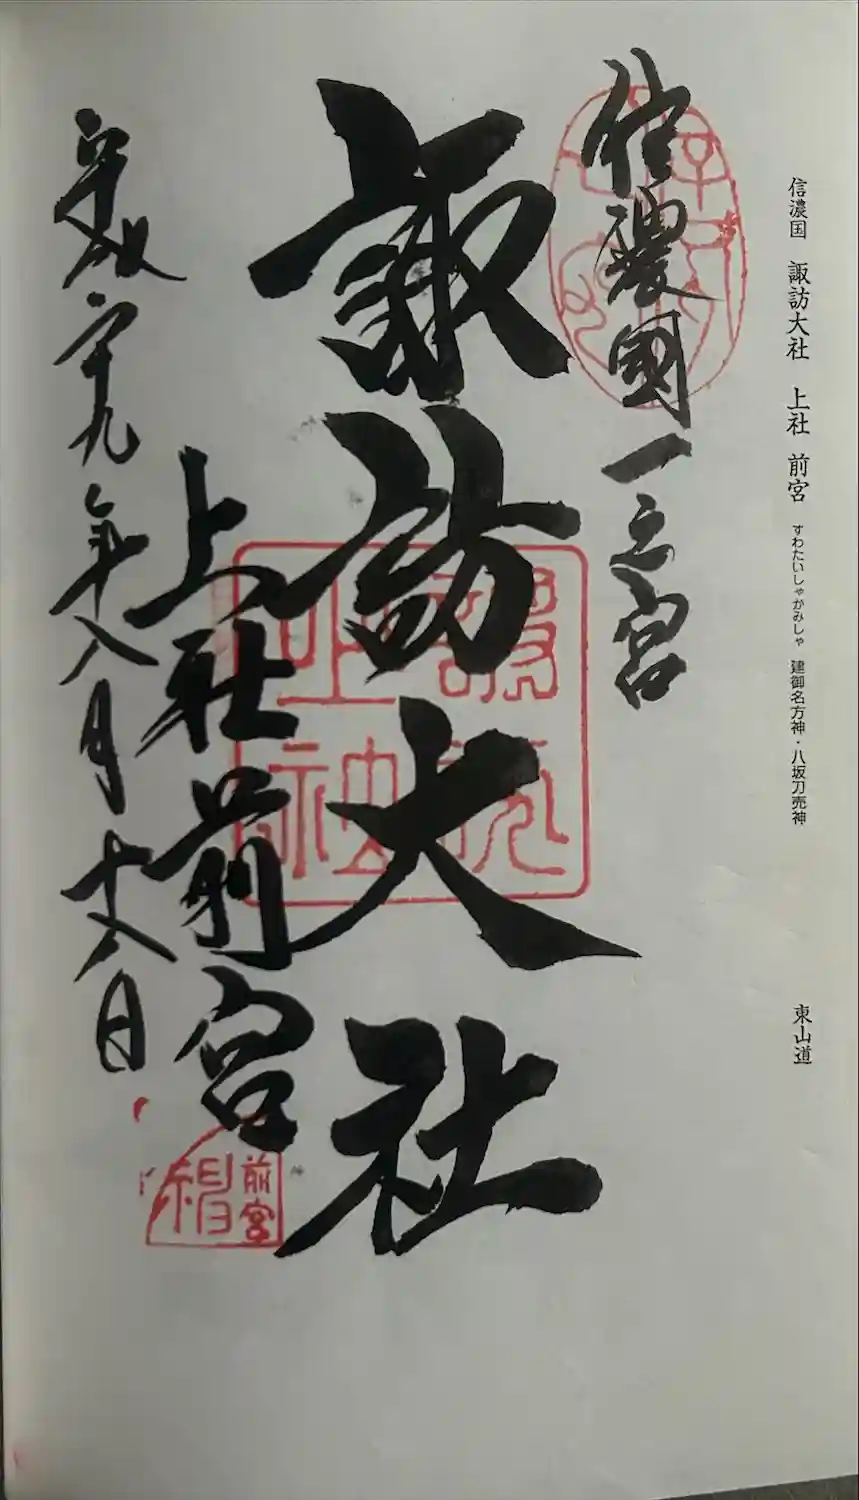 信濃国 諏訪大社 上社 前宮 すわたいしゃかみしゃ 建御名方神・八坂刀売神 東山道
信濃國一之宮
諏訪大社
上社前宮
平成二十九年八月十八日
前宮